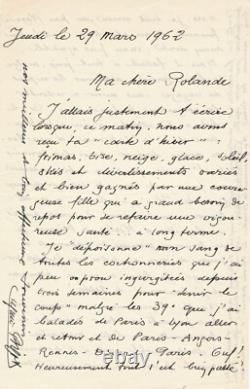 Jeudi le 29 mars 1962
Ma chère Rolande
J'allais justement t'écrire
lorsque, ce matin, nous avons
reçu ta "carte d'hiver" :
frimas, bise, neige, glace, soleil,
skis et divertissements variés
et bien gagnés par une coura-
geuse fille qui a grand besoin de
repos pour se refaire une vigou-
reuse santé à long terme.
Je "dépoisonne" mon sang de
toutes les cochonneries que j'ai
peu ou prou ingurgitées depuis
trois semaines pour "tenir le
coup" malgré les 39° que j'ai
balades de Paris à Lyon aller
et retour et de Paris - Angers -
Rennes - Paris. Ouf!
Heureusement tout l'est bien passé
nos meilleurs et affectueux